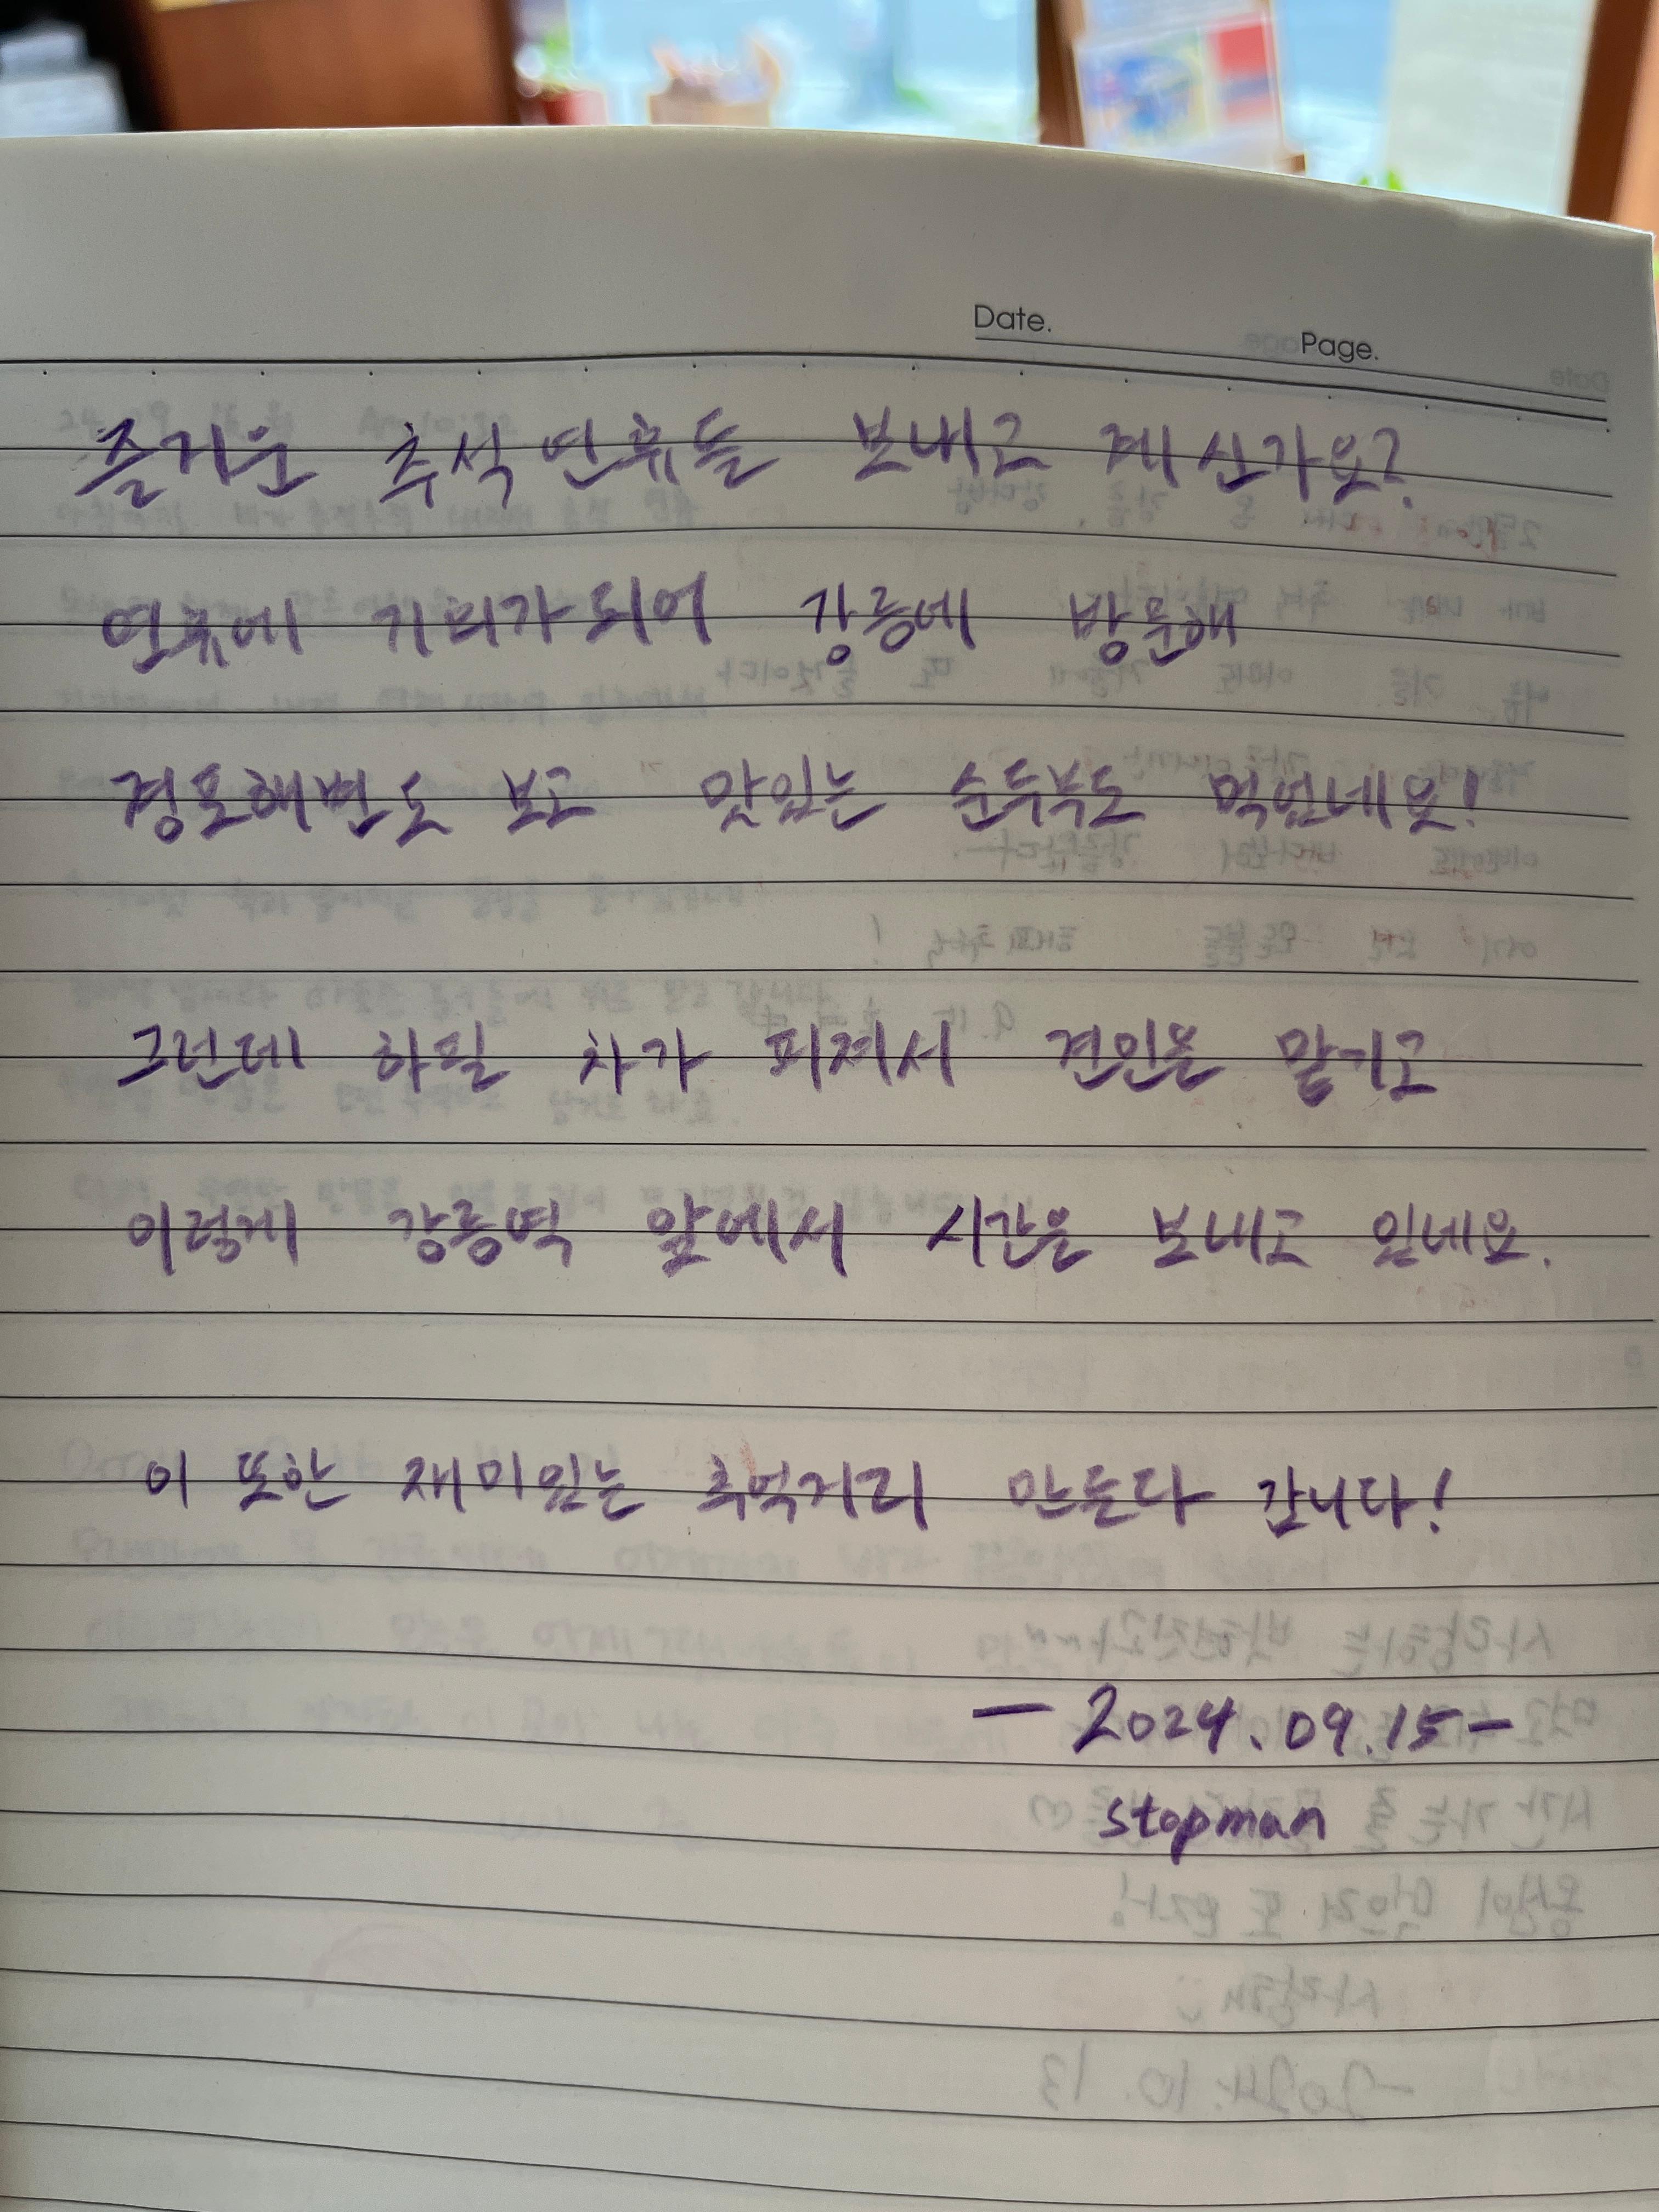 Date.
Page.
즐거운 추석 연휴들 보내고 계신가요?
연휴에 기회가 되어 강릉에 방문해
경포해변도 보고 맛있는 순두부도 먹었네요!
그런데 하필 차가 퍼져서 견인을 맡기고
이렇게 강릉역 앞에서 시간을 보내고 있네요.
이 또한 재미있는 추억거리 만든다 갑니다!
- 2024.09.15 -
stopman